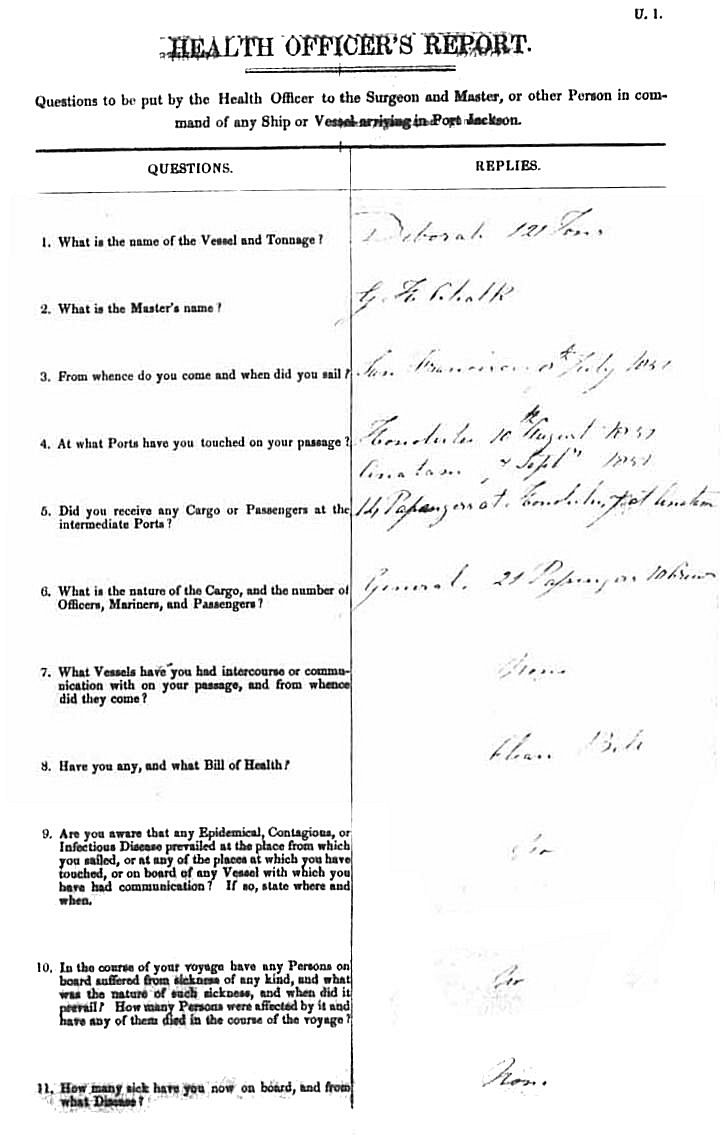 U. 1.
HEALTH OFFICER'S REPORT.
Questions to be put by the Health Officer to the Surgeon and Master, or other Person in com-
mand of any Ship or Vessel arriving in Port Jackson.
QUESTIONS.
REPLIES.
1. What is the name of the Vessel and Tonnage?
Deborah 121 Tons
2. What is the Master's name?
G. F. Chalk
3. From whence do you come and when did you sail?
San Francisco July
4. At what Ports have you touched on your passage?
Honolulu 10th August 1851
Anatam 7 Septr 1851
5. Did you receive any Cargo or Passengers at the
intermediate Ports?
14 Passengers at Honolulu at Anatam
6. What is the nature of the Cargo, and the number of
Officers, Mariners, and Passengers?
General. 21 Passengers 10 Crew
7. What Vessels have you had intercourse or commu-
nication with on your passage, and from whence
did they come?
None
8. Have you any, and what Bill of Health?
Clean Bill
9. Are you aware that any Epidemical, Contagious, or
Infectious Disease prevailed at the place from which
you sailed, or at any of the places at which you have
touched, or on board of any Vessel with which you
have had communication? If so, state where and
when.
No
10. In the course of your voyage have any Persons on
board suffered from sickness of any kind, and what
was the nature of such sickness, and when did it
prevail? How many Persons were affected by it and
have any of them died in the course of the voyage?
No
11. How many sick have you now on board, and from
what Disease?
None